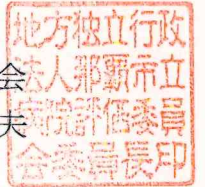 地方独立行政
法人那覇市立
病院評価委員
会委員長印
会
夫